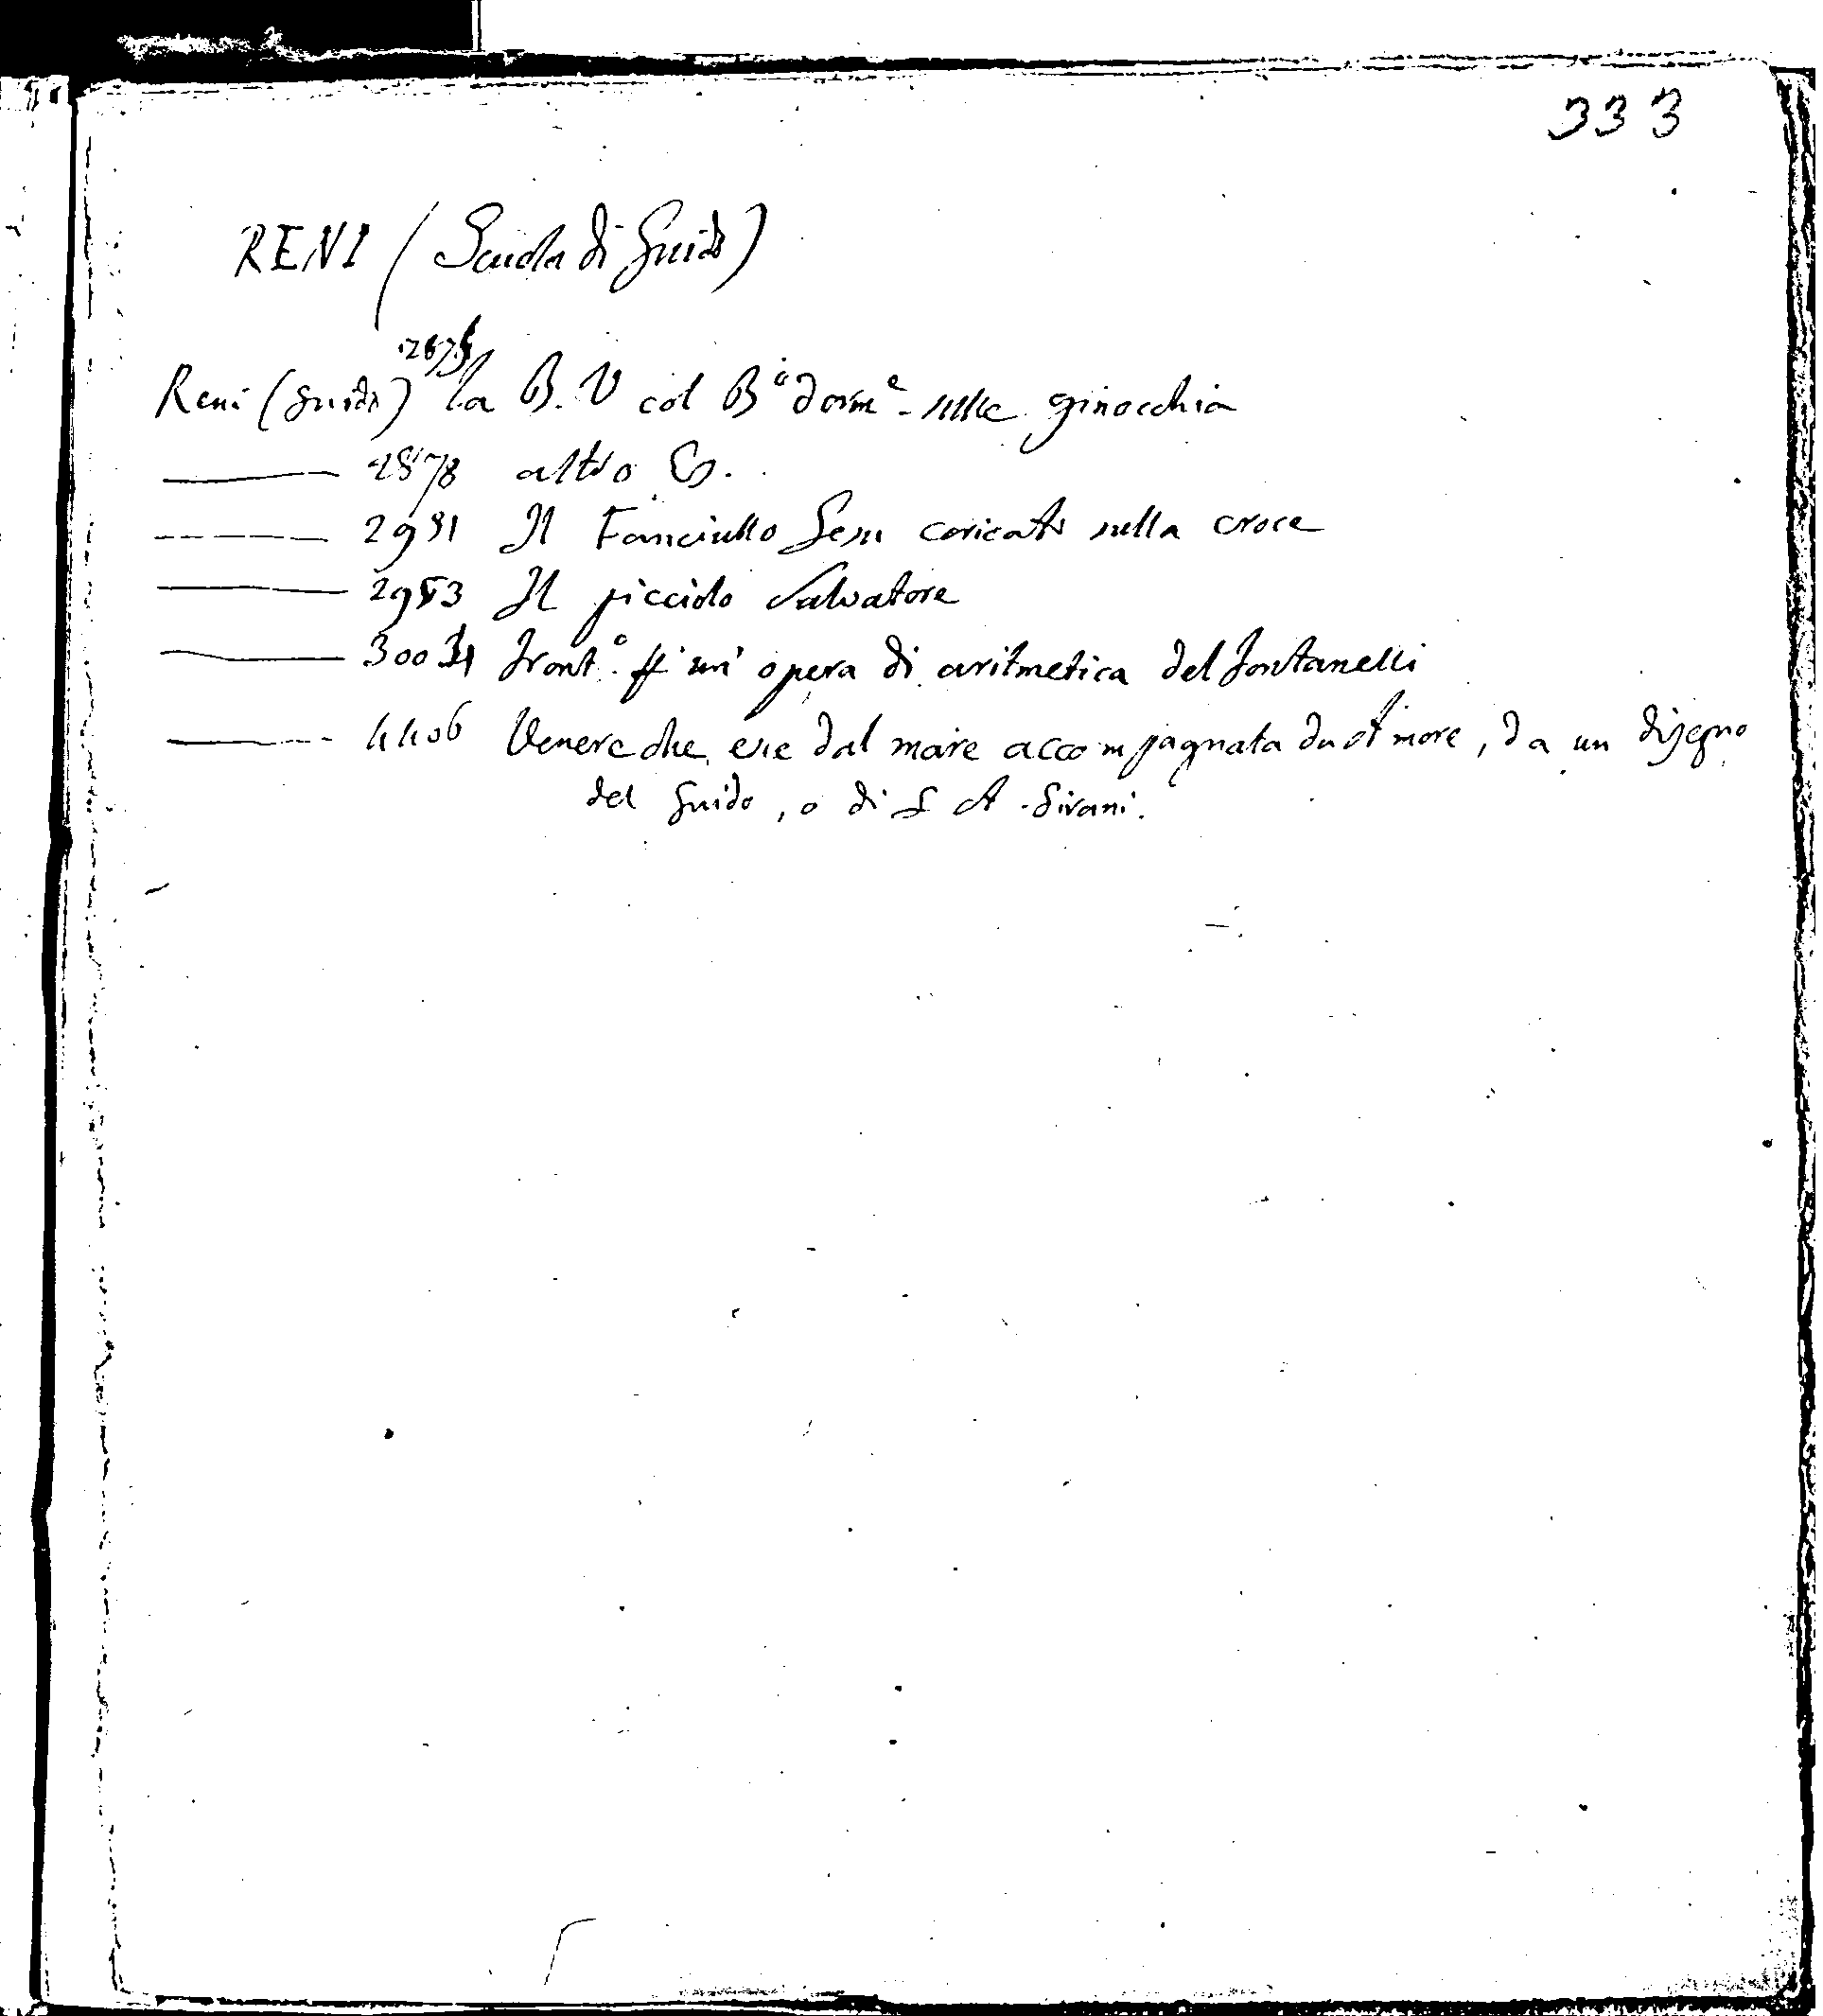 333
RENI (Scuola di Guido)
Reni (Guido) La B. V col B.º dorm.e sulle ginocchia
——— 2878 altro
——— 2981 Il Fanciullo Gesu coricato sulla croce
——— 2983 Il picciolo Salvatore
——— front.º un' opera di aritmetica del Fontanelli
——— 4406 Venere che esce dal mare accompagnata da Amore, da un disegno
del Guido, o di A. Sirani.